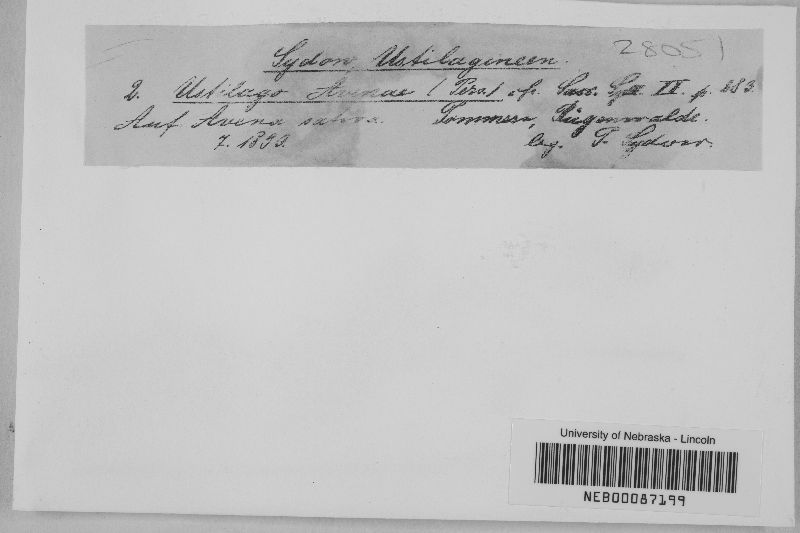 28051
Sydow, Ustilagineen.
2. Ustilago Avenae (Pers.) cfr. Sacc. Syll. VI. p. 283.
Auf Avena sativa. Pommern, Rügenwalde.
7. 1893. leg. P. Sydow.
University of Nebraska - Lincoln
NEB00087199